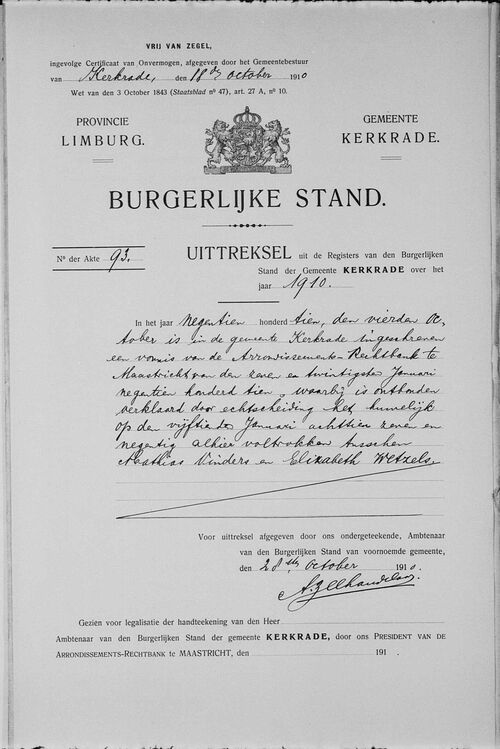 VRIJ VAN ZEGEL,
ingevolge Certificaat van Onvermogen, afgegeven door het Gemeentebestuur
van Kerkrade, den 18de October 1910
Wet van den 3 October 1843 (Staatsblad nº 47), art. 27 A, nº 10.
PROVINCIE
LIMBURG.
GEMEENTE
KERKRADE.
BURGERLIJKE STAND.
Nº der Akte 93.
UITTREKSEL uit de Registers van den Burgerlijken
Stand der Gemeente KERKRADE over het
jaar 1910.
In het jaar negentien honderd tien, den vierden Oc-
tober is in de gemeente Kerkrade ingeschreven
een vonnis van de Arrondissements-Rechtbank te
Maastricht van den zeven en twintigsten Januari
negentien honderd tien, waarbij is ontbonden
verklaard door echtscheiding het huwelijk
op den vijftienden Januari achttien zeven en
negentig alhier voltrokken tusschen
Mathias Vinders en Elizabeth Wetzels.
Voor uittreksel afgegeven door ons ondergeteekende, Ambtenaar
van den Burgerlijken Stand van voornoemde gemeente,
den 28sten October 1910.
Gezien voor legalisatie der handteekening van den Heer
Ambtenaar van den Burgerlijken Stand der gemeente KERKRADE, door ons PRESIDENT VAN DE
ARRONDISSEMENTS-RECHTBANK te MAASTRICHT, den 191 .